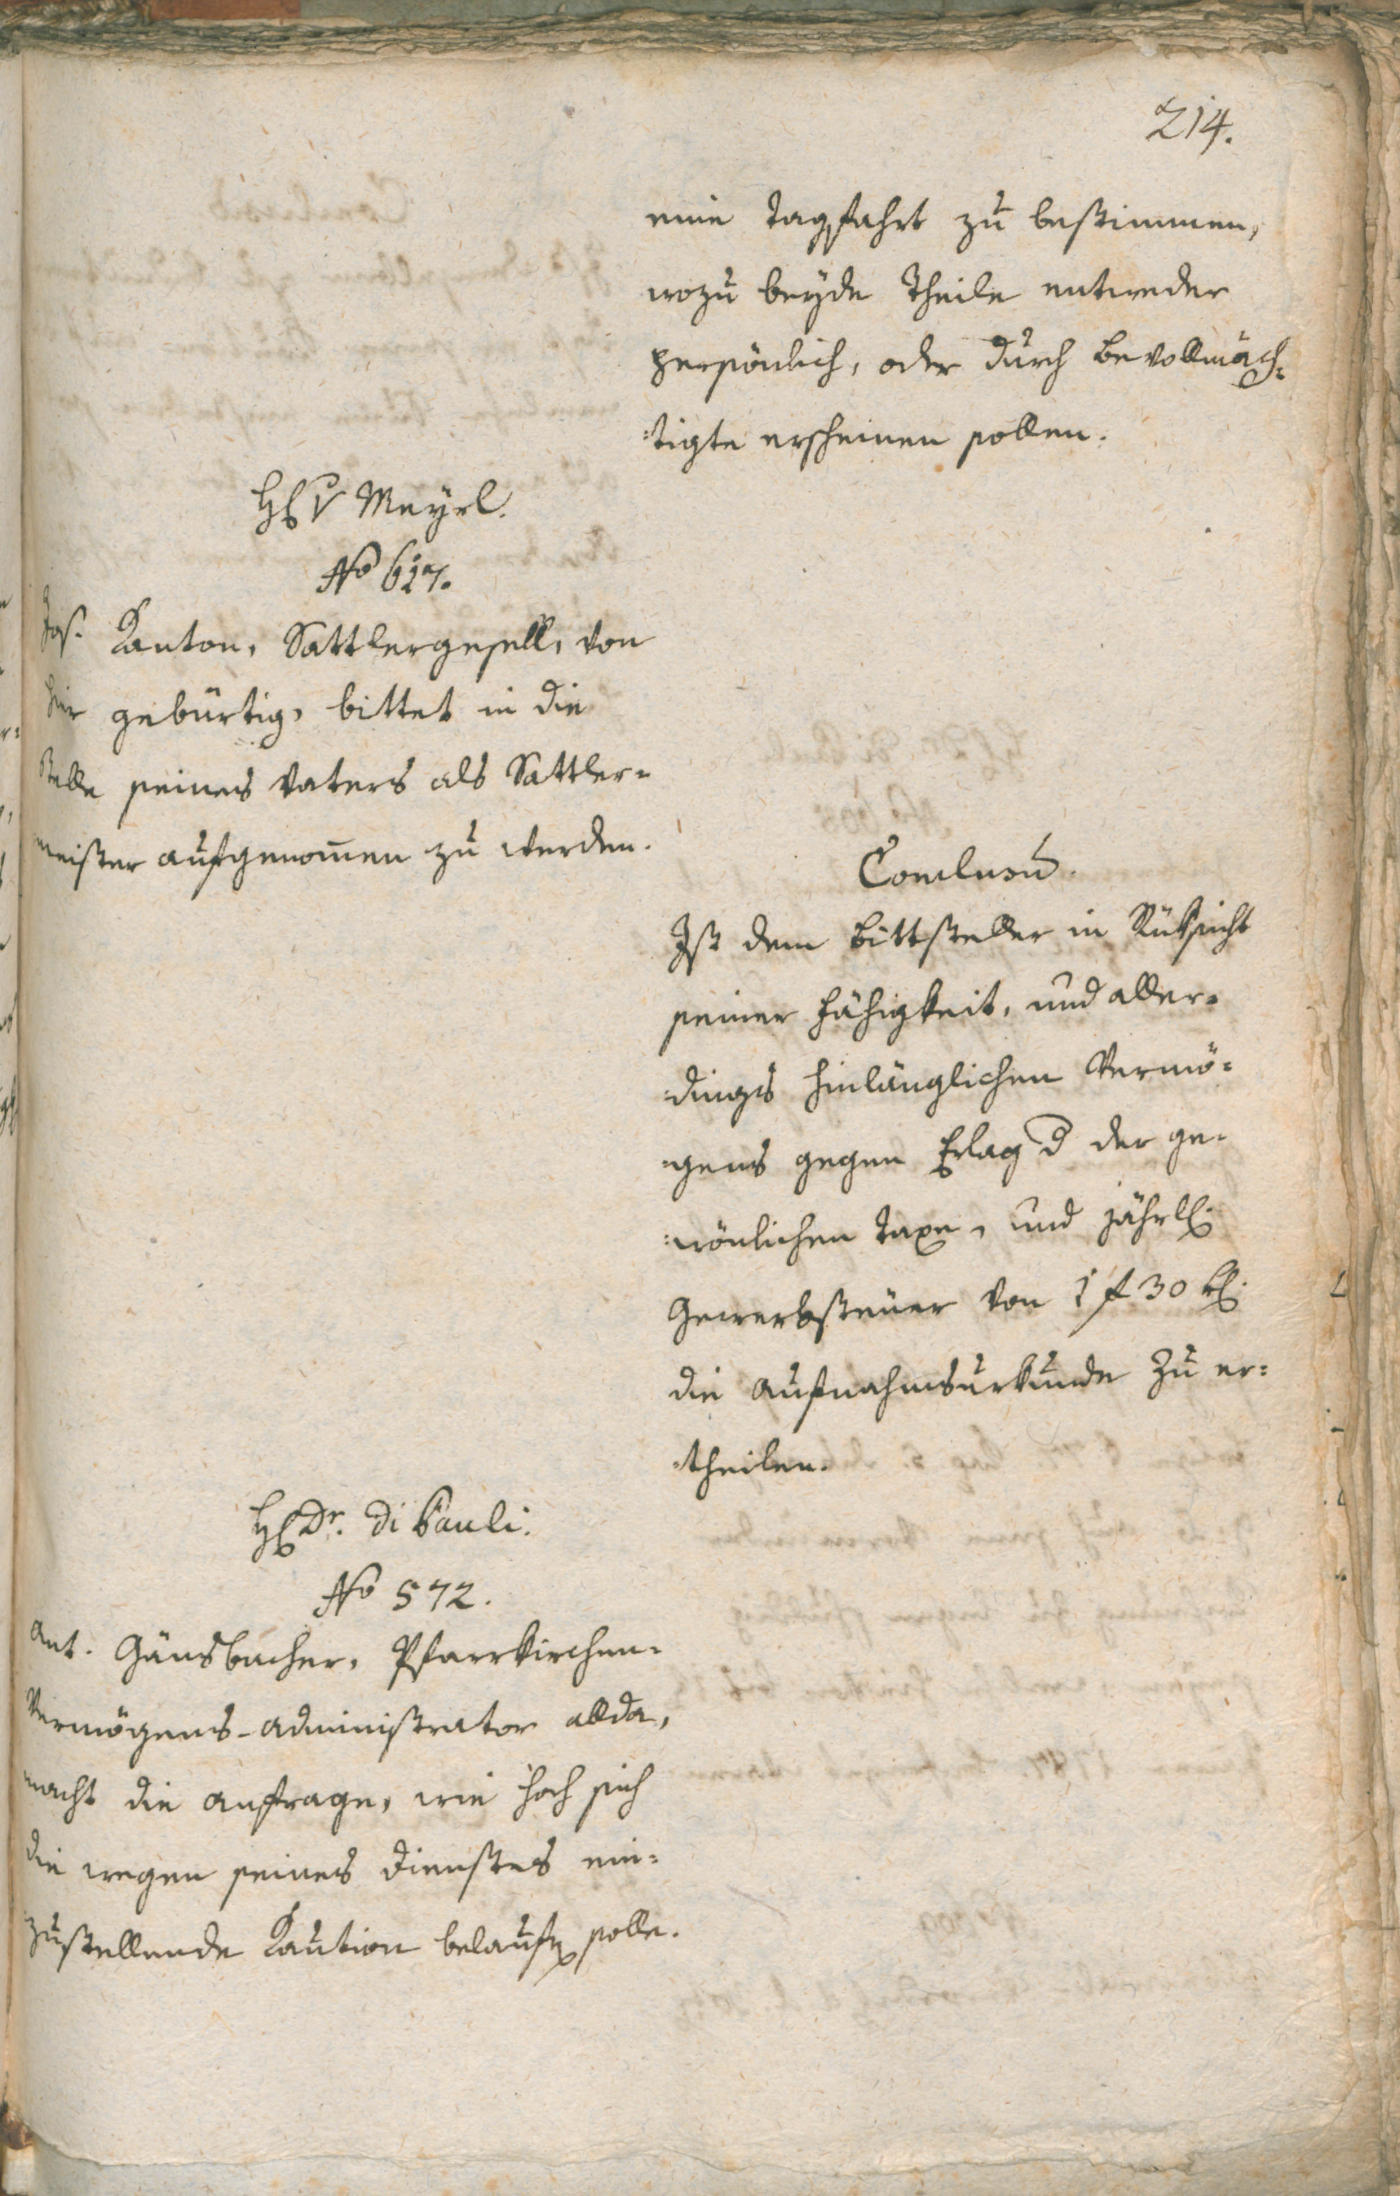 214.
eine Tagsfahrt zu bestimmen,
wozu beyde Theile entweder
persönlich, oder durch Bevollmäch-
:tigte erscheinen sollen.
H. v Mayrl.
No 617.
Jos. Kanton, Sattlergesell, von
hir gebürtig, bittet in die
Stelle seines Vaters als Sattler-
meister aufgenomen zu werden.
Conclusū.
Ist dem Bittsteller in Rüksicht
seiner Fähigkeit, und aller-
:dings hinlänglichen Vermö-
:gens gegen Erlag d der ge-
:wönlichen Taxe, und jährl.
Gewerbsteuer von 1 f 30 k.
die Aufnahmsurkunde zu er-
:theilen.
H. Dr. Di Pauli.
No 572.
Ant. Gänsbacher, Pfarrkirchen-
Vermögens-Administrator allda,
macht die Anfrage, wie hoch sich
die wegen seines Dienstes ein-
zustellende Kaution belaufen solle.